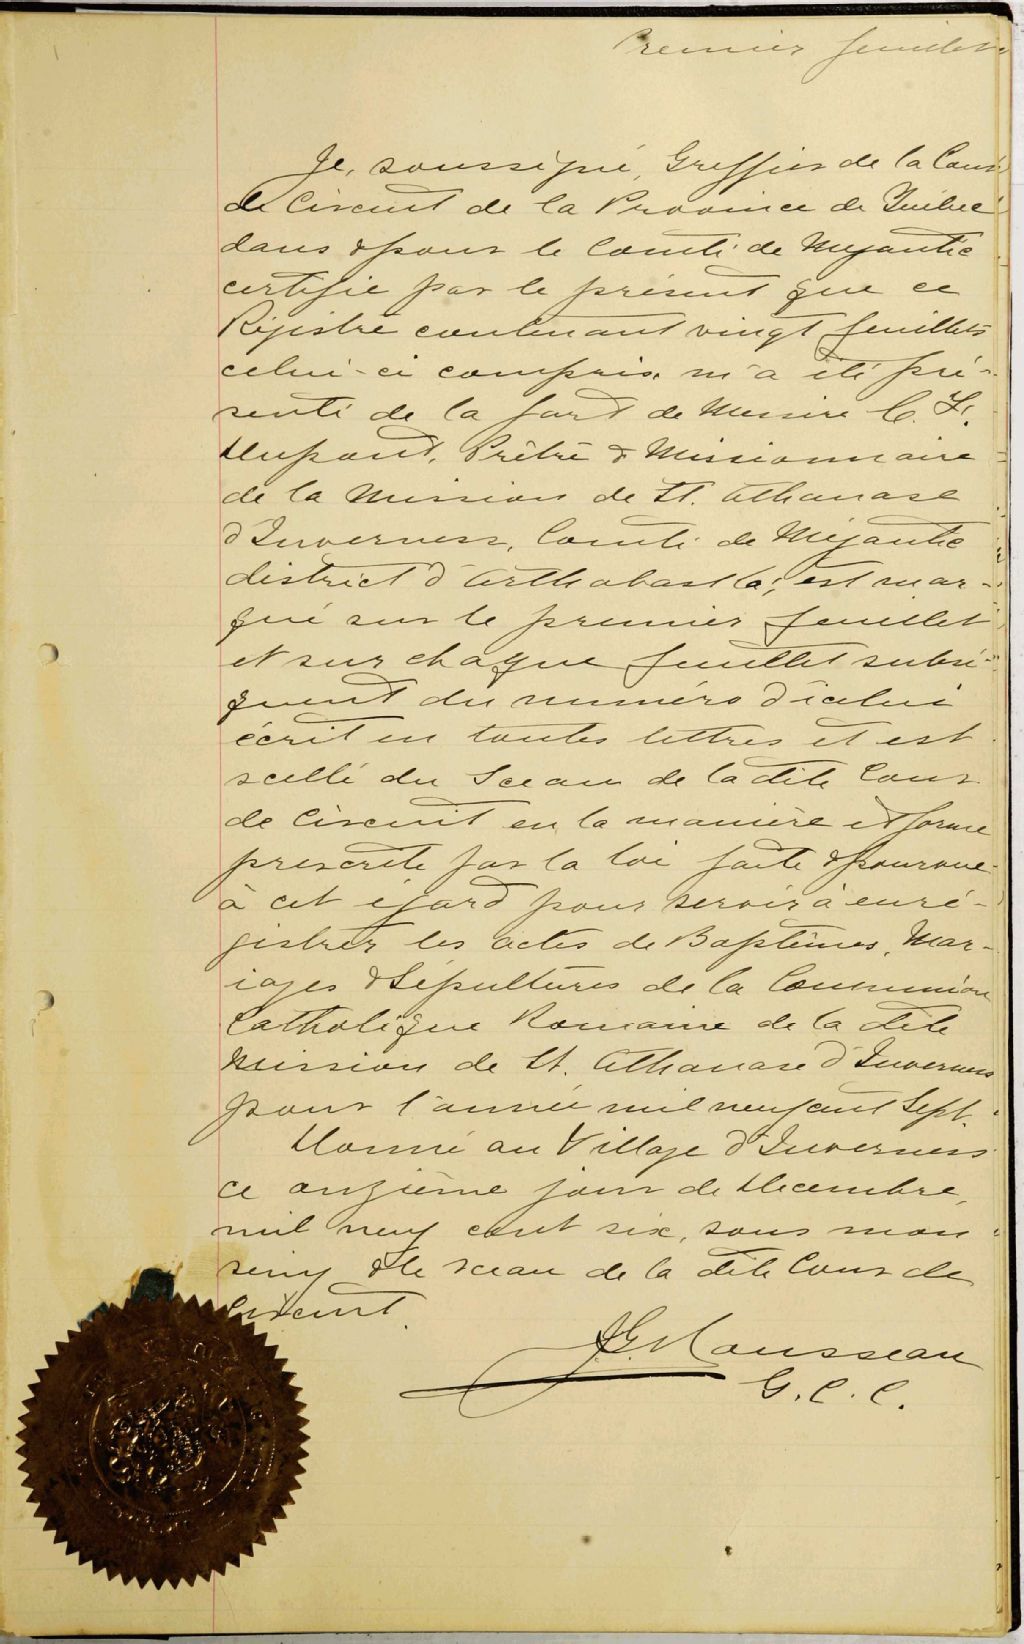 Premier feuillet
Je, soussigné, Greffier de la Cour
de Circuit de la Province de Québec
dans & pour le Comté de Mégantic
certifie par le présent que ce
Régistre contenant vingt feuillets
celui-ci compris m'a été pré-
senté de la part de Messire C. F.
Dupont, Prêtre & Missionnaire
de la Mission de St. Athanase
d'Inverness, Comté de Mégantic
district d'Arthabaska; est mar-
qué sur le premier feuillet
et sur chaque feuillet subsé-
quent du numéro d'icelui
écrit en toutes lettres et est
scellé du Sceau de la dite Cour
de Circuit en la manière et forme
prescrite par la loi faite & pourvue
à cet égard pour servir à enré-
gistrer les actes de Baptêmes, Mar-
iages & Sépultures de la Communion
Catholique Romaine de la dite
Mission de St. Athanase d'Inverness
pour l'année mil neuf cent Sept.
Donné au Village d'Inverness
ce onzième jour de Decembre,
mil neuf cent six, sous mon
seing & le sceau de la dite Cour de
Circuit.
Rousseau
G. C. C.